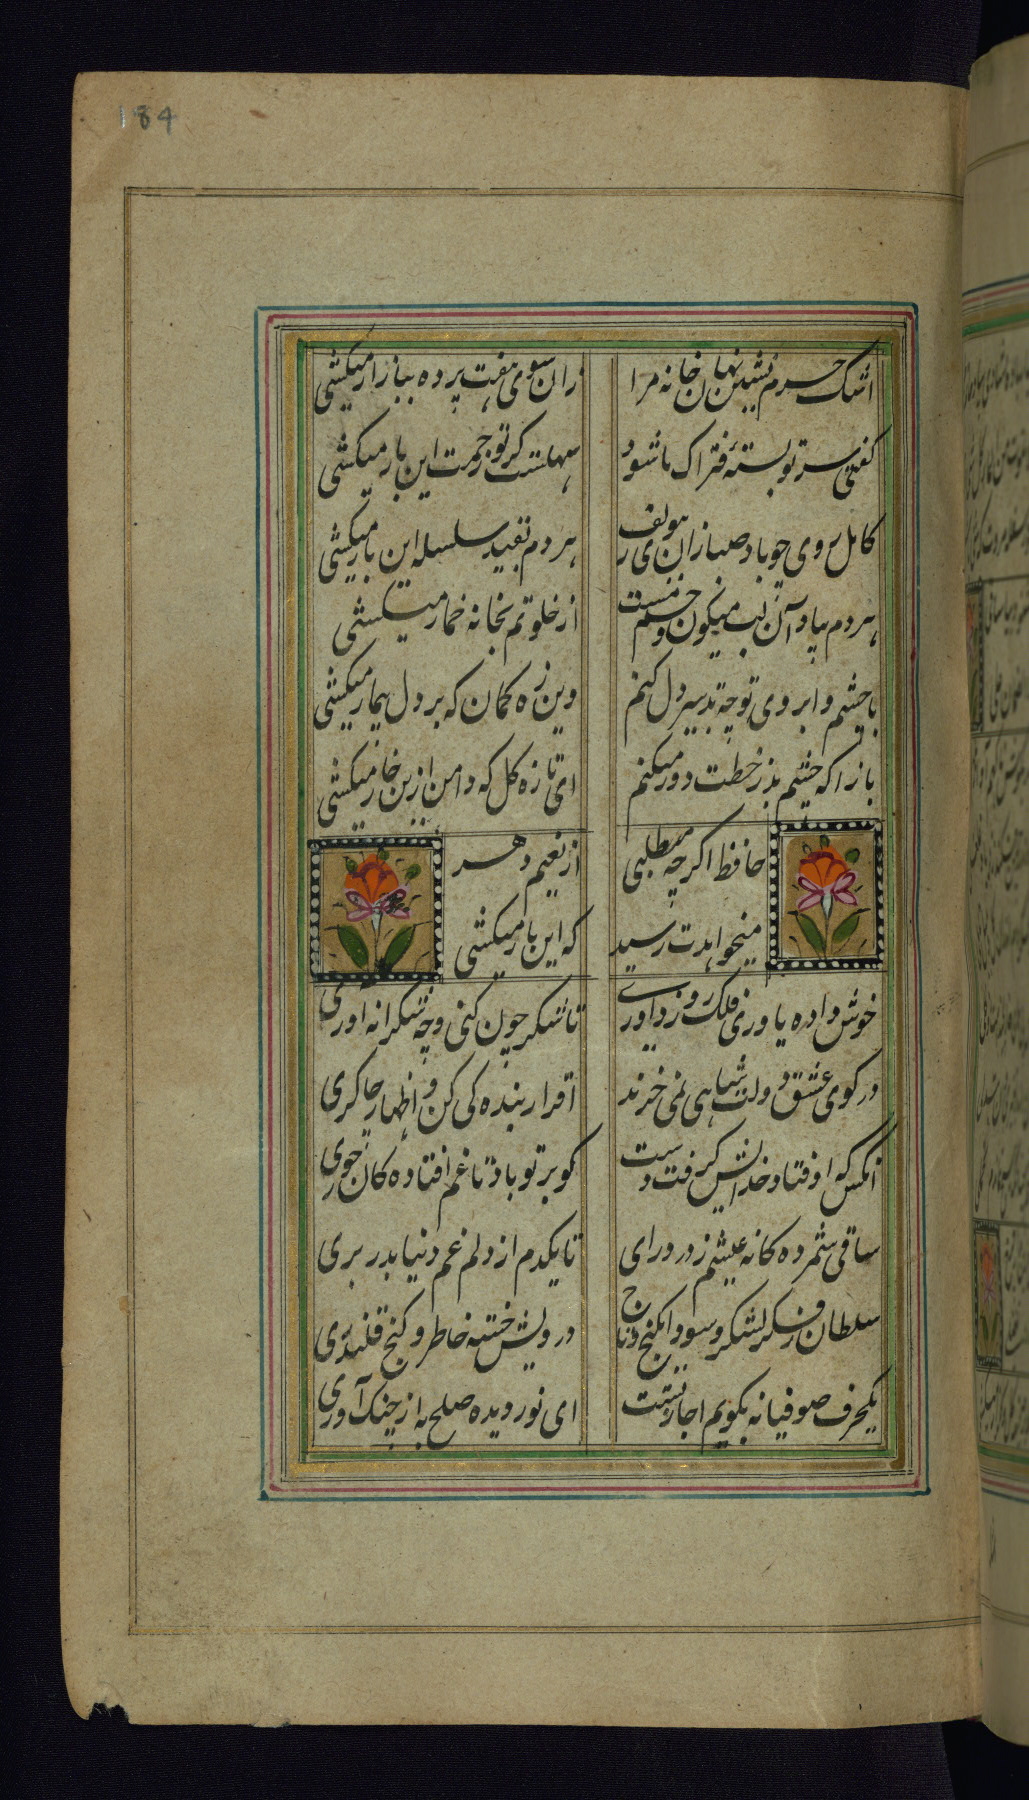 184
اشک حرم نشین نهان خانه مرا
زان سوی هفت پرده ببازار میکشی
گفتی سر تو بسته فتراک ما شود
سهلست گر تو زحمت این بار میکشی
کامل روی چو باد صبا را زان زلف
هر دم بقید سلسله این بار میکشی
هر دم بیاد آن لب میگون و چشم مست
از خلوتم بخانه خمار میکشی
با چشم و ابروی تو چه تدبیر دل کنم
وین زه کمان که بر دل بیمار میکشی
باز آ که چشم بد ز رخت دور میکنم
ای تازه گل که دامن ازین خار میکشی
حافظ اگر چه میطلبی
از نعیم دهر
میخواهدت رسید
که این بار میکشی
خوش داد یاوری فلک روز داوری
تا شکر چون کنی و چه شکرانه اوری
در کوی عشق دولت شاهی نمی خرند
اقرار بنده کی کن و اظهار چاکری
آنکس که اوفتاد خدایش گرفت دست
کو بر تو باد تا غم افتاده کان خوری
ساقی بمژده کانه عیشم ز در درای
تا یکدم از دلم غم دنیا بدر بری
سلطان و فکر لشکر و سودای گنج و تاج
درویش خسته خاطر و کنج قلندری
یکحرف صوفیانه بگویم اجازتست
ای نور دیده صلح به از جنگ آوری